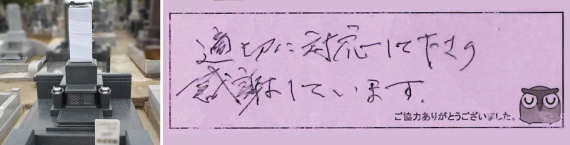 適切に対応して下さり
感謝しています。
ご協力ありがとうございました。